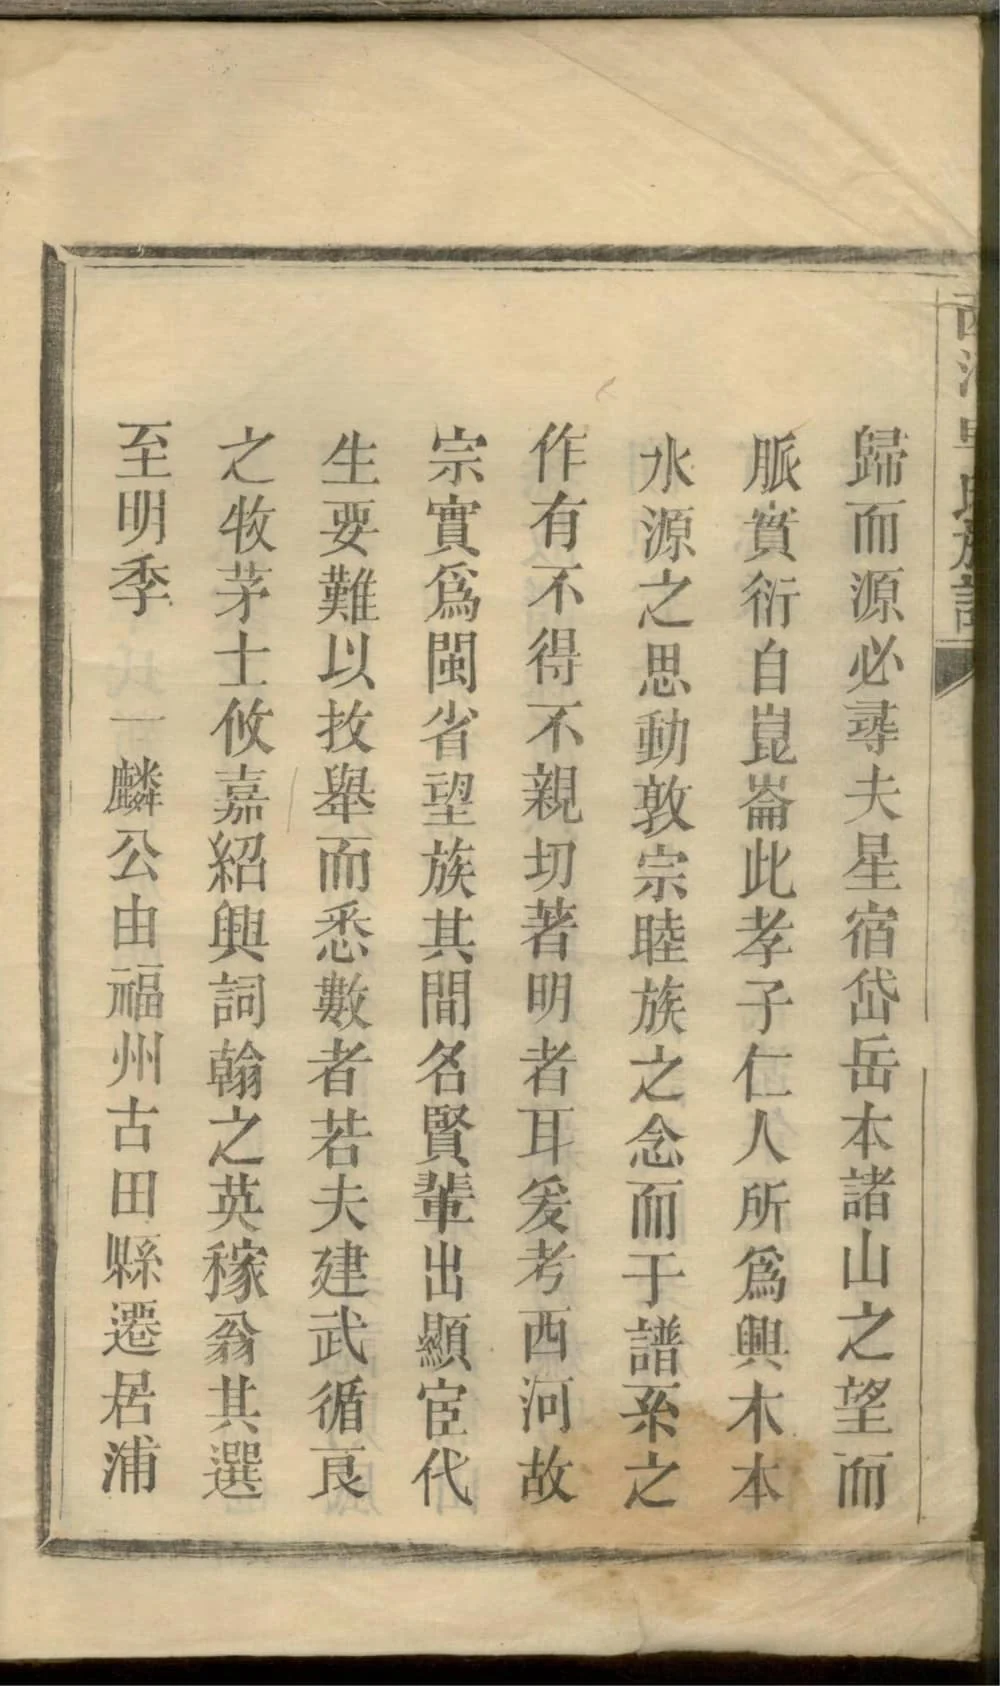 歸而源必尋夫星宿岱岳本諸山之望而
脈實衍自崑崙此孝子仁人所爲興木本
水源之思動敦宗睦族之念而于譜系之
作有不得不親切著明者耳爰考西河故
宗實爲閩省望族其間名賢輩出顯宦代
生要難以枚舉而悉數者若夫建武循良
之牧茅士攸嘉紹興詞翰之英稼翁其選
至明季 一麟公由福州古田縣遷居浦